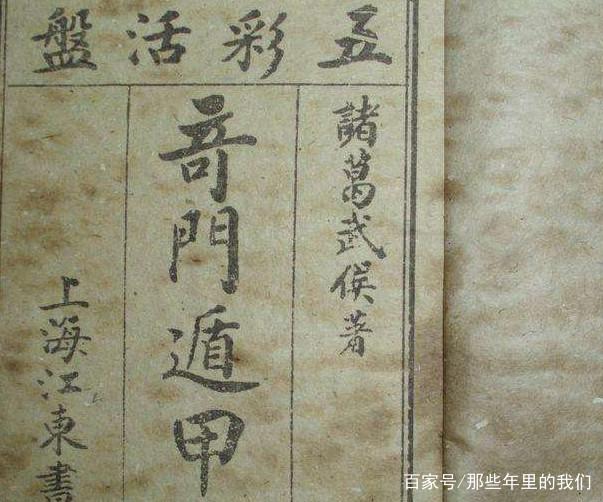 五彩活盤
諸葛武侯著
奇門遁甲
上海江東書
百家号/那些年里的我们